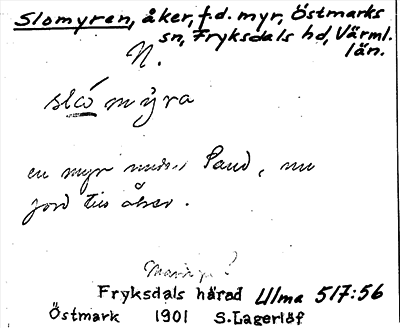 Slomyren, åker, f.d. myr, Östmarks
sn, Fryksdals hd, Värml.
län.
N.
sló mỳra
en myr under Paud, nu
jord till åker.
Fryksdals härad Ulma 517:56
Östmark 1901 S. Lagerlöf